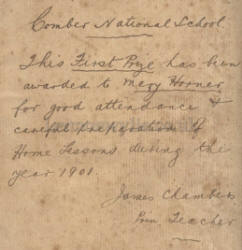 Comber National School
This First Prize has been
awarded to Mary Horner
for good attendance &
careful preparation of
Home Lessons during the
year 1901.
James Chambers
Prin Teacher